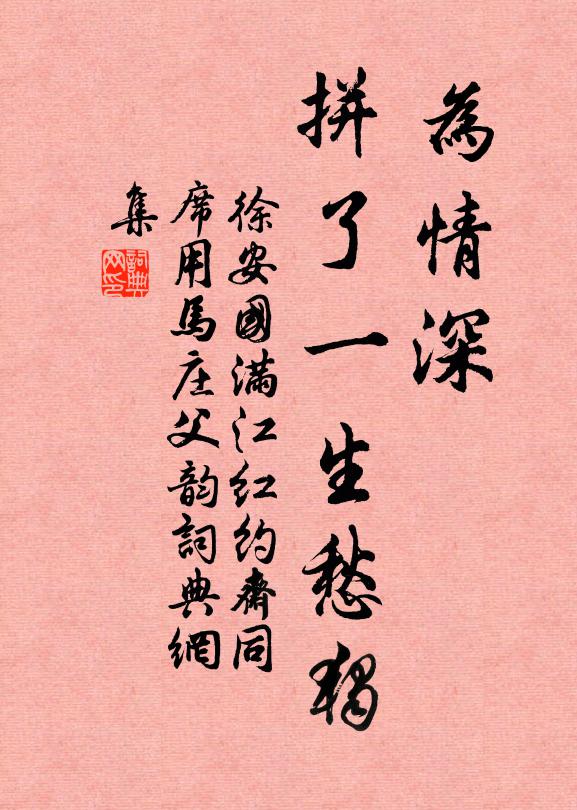 為情深
拼了一生愁独
徐安國满江红约齋同
席用馬庄父韵詞典網
集
詞典
网印